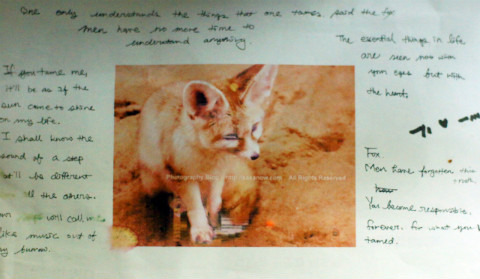 One only understands the things that one tames, said the fox
Men have no more time to
understand anything.
The essential things in life
are seen not with
your eyes but with
the heart.
If tame me,
it'll be as if the
sun come to shine
on my life.
I shall know the
sound of a step
that'll be different
all the others.
will call me
like music out of
my burrow.
Photography Blog All Rights Reserved
Fox
Men have forgotten this
truth
You become responsible,
forever, for what you
tamed.